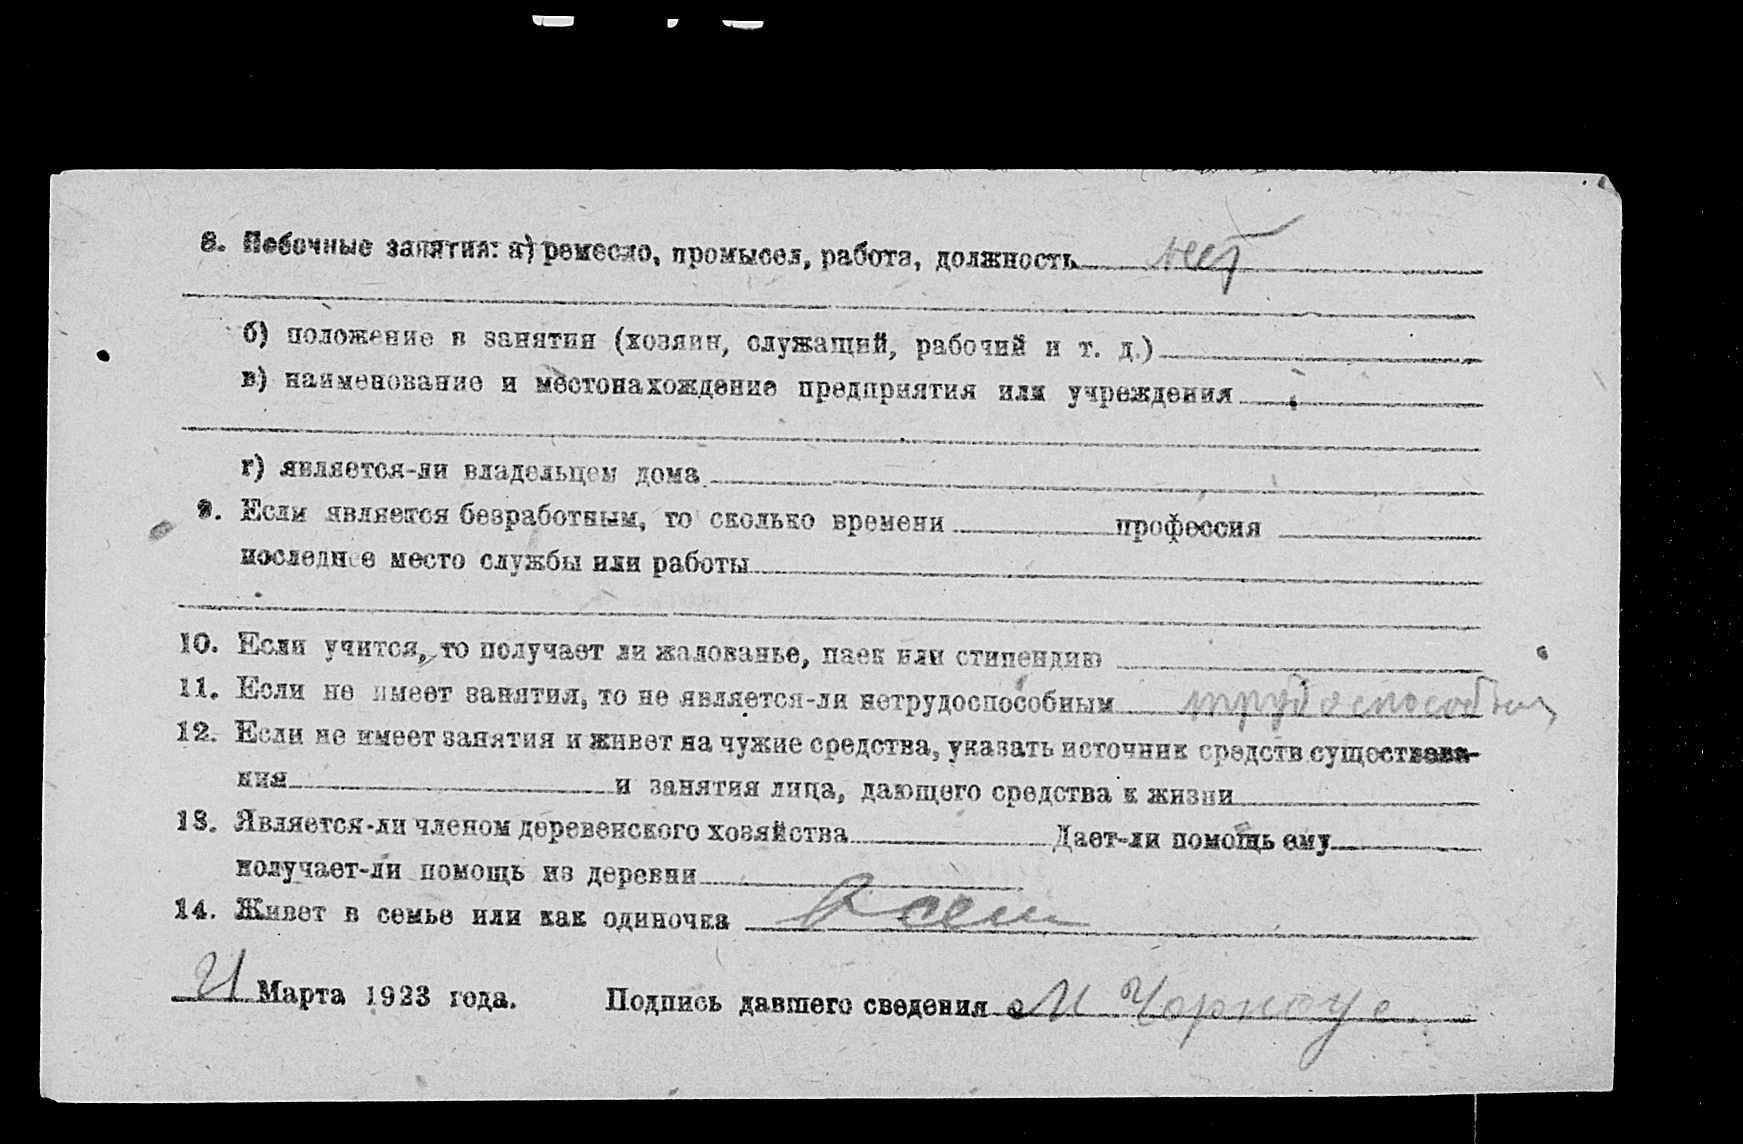 8. Побочные занятия: а) ремесло, промысел, работа, должность нет
б) положение в занятии (хозяин, служащий, рабочий и т. д.)
в) наименование и местонахождение предприятия или учреждения
г) является-ли владельцем дома
9. Если является безработным, то сколько времени профессия
последнее место службы или работы
10. Если учится, то получает ли жалованье, паек или стипендию
11. Если не имеет занятия, то не является-ли нетрудоспособным трудоспособный
12. Если не имеет занятия и живет на чужие средства, указать источник средств существова-
ния и занятия лица, дающего средства к жизни
13. Является-ли членом деревенского хозяйства Дает-ли помощь ему
получает-ли помощь из деревни
14. Живет в семье или как одиночка В сем
21 Марта 1923 года. Подпись давшего сведения М Чорноус